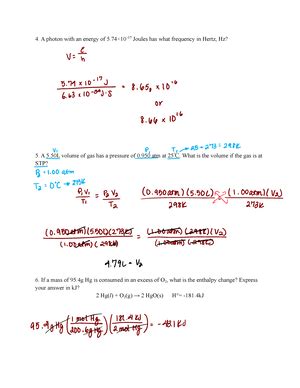 4. A photon with an energy of 5.74×10⁻¹⁷ Joules has what frequency in Hertz, Hz?
V = E/h
5.74 x 10⁻¹⁷ J / 6.63 x 10⁻³⁴ J·s = 8.65₂ x 10¹⁶
or
8.66 x 10¹⁶
V₁ P₁ T₁ = 25 + 273 = 298K
5. A 5.50L volume of gas has a pressure of 0.950 atm at 25°C. What is the volume if the gas is at
STP?
P₂ = 1.00 atm
T₂ = 0°C → 273K
P₁V₁/T₁ = P₂V₂/T₂ (0.950atm)(5.50L)/298K = (1.00atm)(V₂)/273K
(0.950atm)(5.50L)(273K)/(1.00atm)(298K) = (1.00atm)(298K)(V₂)/(1.00atm)(298K)
4.79L = V₂
6. If a mass of 95.4g Hg is consumed in an excess of O₂, what is the enthalpy change? Express
your answer in kJ?
2 Hg(l) + O₂(g) → 2 HgO(s) H°= -181.4kJ
95.4g Hg (1 mol Hg/200.6g Hg)(181.4 kJ/2 mol Hg) = -43.1 kJ